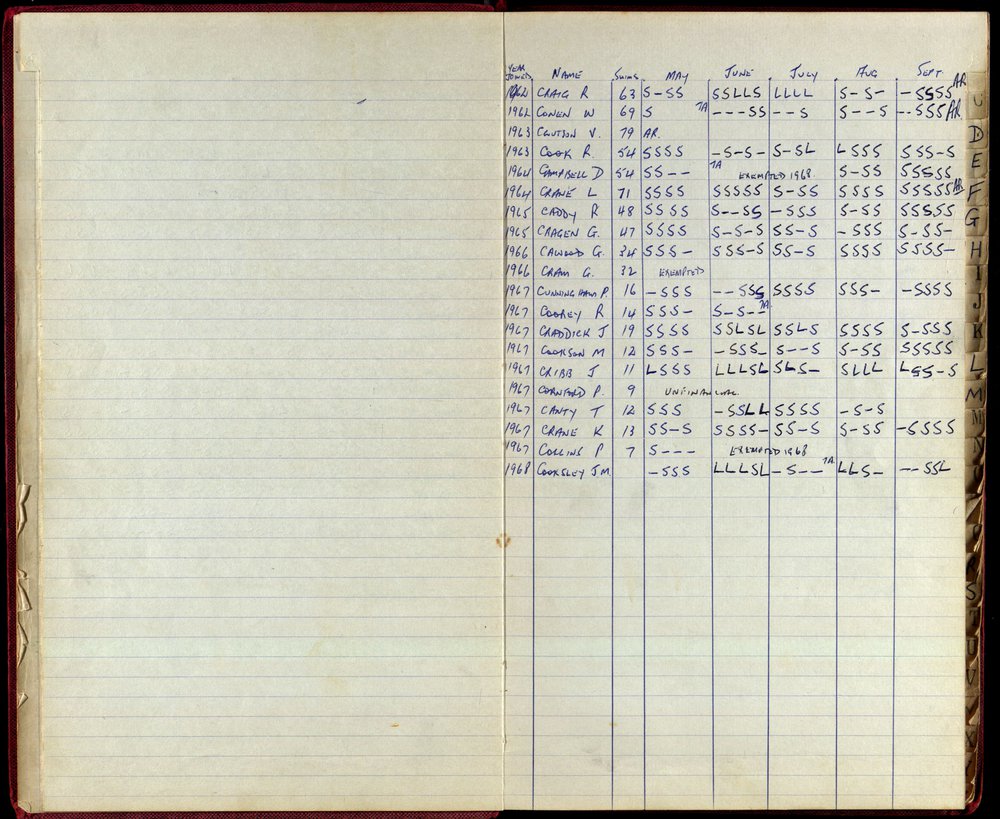 YEAR JOINED NAME SWIMS MAY JUNE JULY AUG SEPT
1962 CRAIG R 63 S-SS SSLLS LLLL S-S- -SSSS AR.
1962 COWEN W 69 S TA ---SS --S S--S --SSS AR.
1963 CLUTSON V. 79 AR.
1963 COOK R. 54 SSSS -S-S- S-SL LSSS SSS-S
1964 CAMPBELL D 54 SS-- TA EXEMPTED 1968. S-SS SSSSS
1964 CRANE L 71 SSSS SSSSS S-SS SSSS SSSSS AR.
1965 CADDY R 48 SSSS S--SS -SSS S-SS SSSSS
1965 CRAGEN G. 47 SSSS S-S-S SS-S -SSS S-SS-
1966 CAWOOD G. 34 SSS- SSS-S SS-S SSSS SSSS-
1966 CRAM G. 32 EXEMPTED
1967 CUNNINGHAM P. 16 -SSS --SSS SSSS SSS- -SSSS
1967 COOREY R 14 SSS- S-S-- TA
1967 CRADDICK J 19 SSSS SSLSL SSLS SSSS S-SSS
1967 COOKSON M 12 SSS- -SSS- S--S S-SS SSSSS
1967 CRIBB J 11 LSSS LLLSL SLS- SLLL LSS-S
1967 CORNFORD P. 9 UNFINANCIAL.
1967 CANTY T 12 SSS -SSLL SSSS -S-S
1967 CRANE K 13 SS-S SSSS- SS-S S-SS -SSSS
1967 COLLINS P 7 S--- EXEMPTED 1968
1968 COOKSLEY J.M. -SSS LLLSL -S-- TA LLS- --SSL
D
E
F
G
H
I
J
K
L
M
R
S
T
U
V